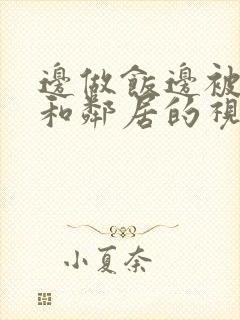 邊做飯邊被
和鄰居的視
小夏奈